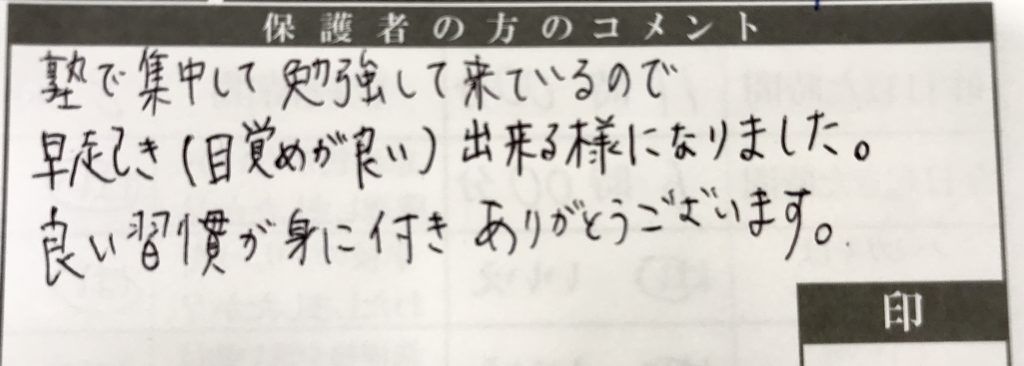 保護者の方のコメント
塾で集中して勉強して来ているので
早起き(目覚めが良い)出来る様になりました。
良い習慣が身に付きありがとうございます。
印